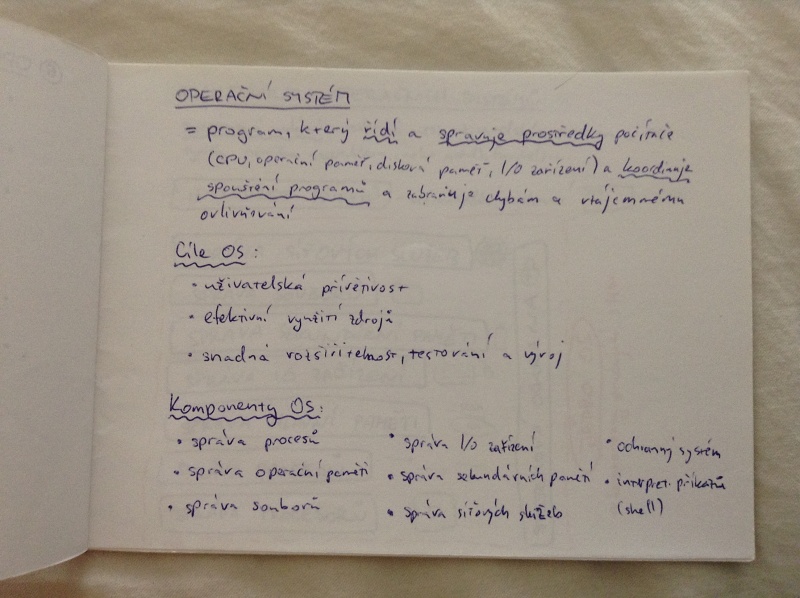 OPERAČNÍ SYSTÉM
= program, který řídí a spravuje prostředky počítače
(CPU, operační paměť, disková paměť, I/O zařízení) a koordinuje
spouštění programů a zabraňuje chybám a vzájemnému
ovlivňování
Cíle OS:
• uživatelská přívětivost
• efektivní využití zdrojů
• snadná rozšiřitelnost, testování a vývoj
Komponenty OS:
• správa procesů
• správa operační paměti
• správa souborů
• správa I/O zařízení
• správa sekundárních pamětí
• správa síťových služeb
• ochranný systém
• interpret. příkazů
(shell)